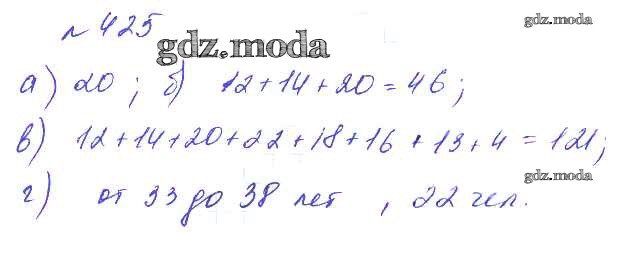 № 425
gdz.moda
gdz.moda
а) 20 ; б) 12+14+20=46;
в) 12+14+20+22+18+16+13+4=121;
gdz.moda
г) от 33 до 38 лет , 22 чел.